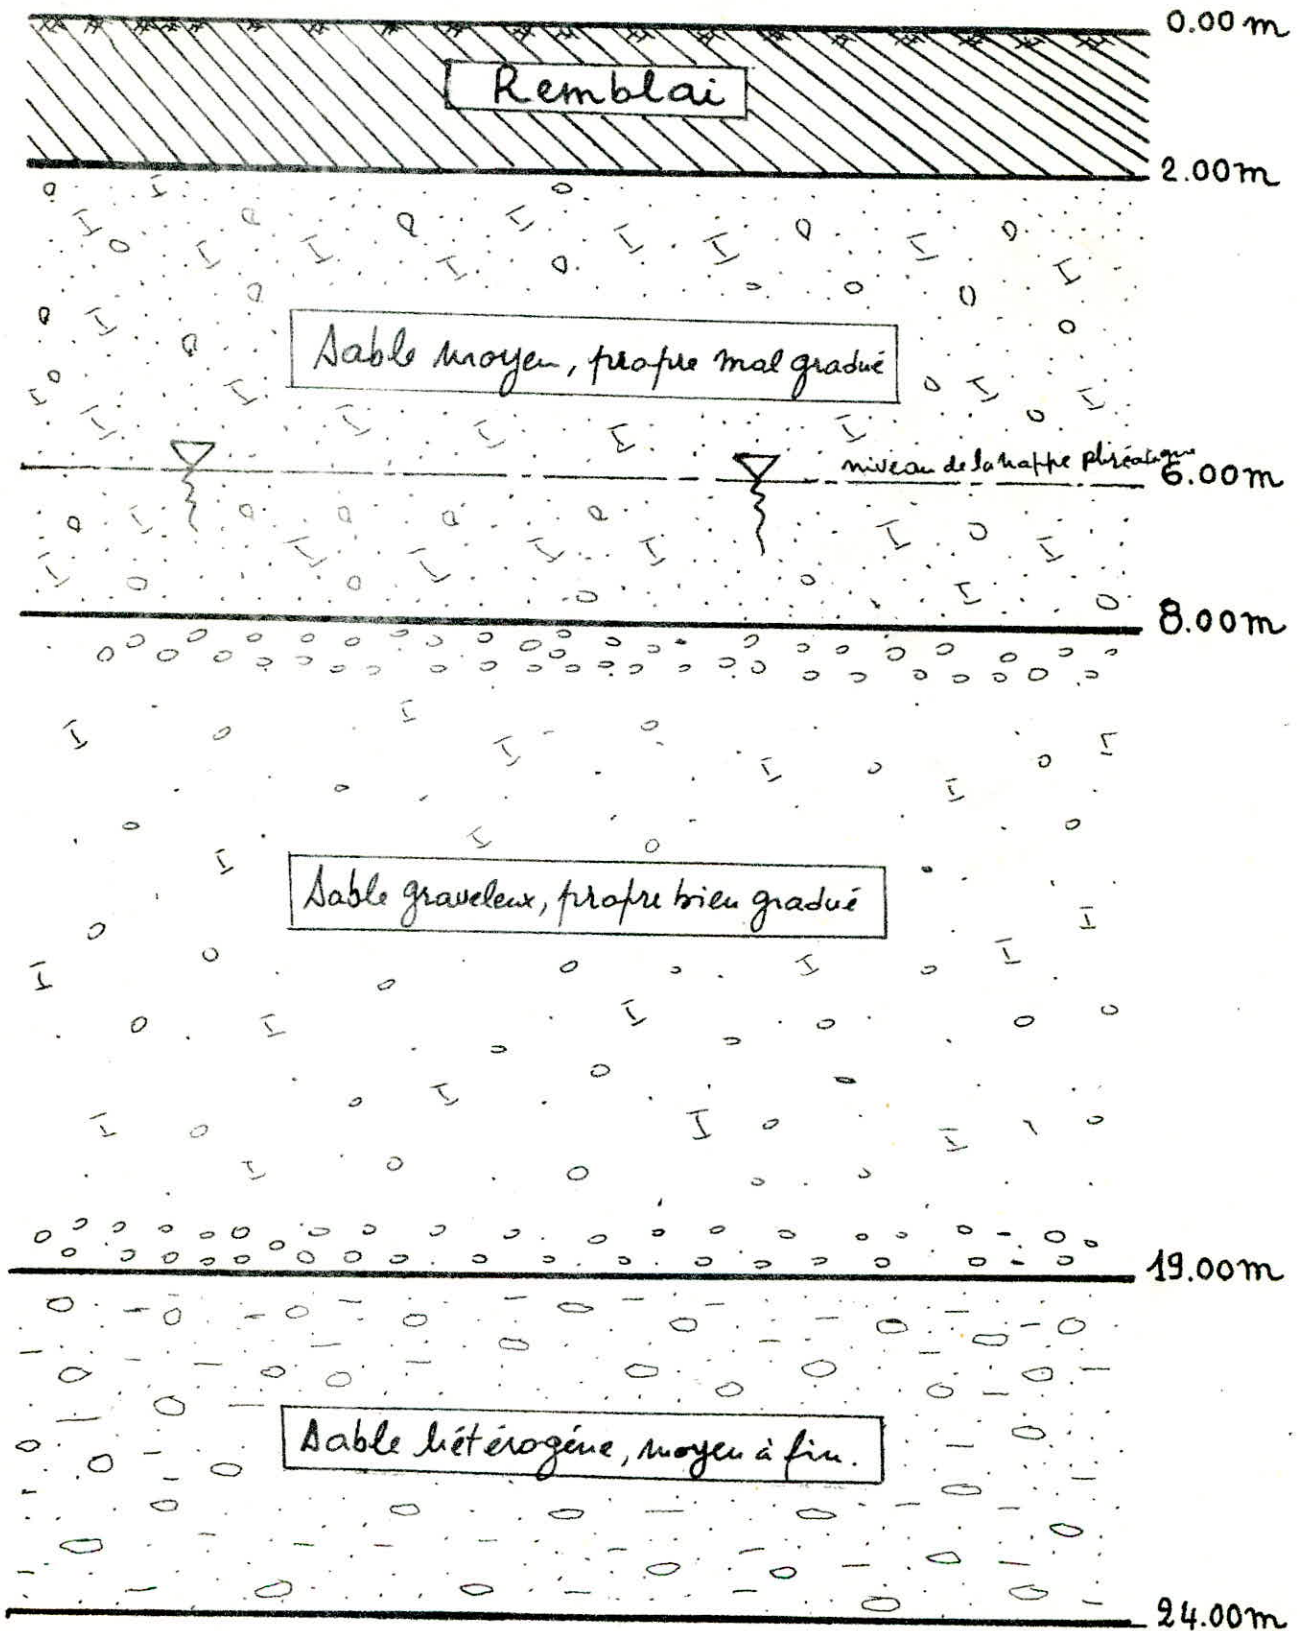 0.00 m
Remblai
2.00m
Sable moyen, propre mal gradué
niveau de la nappe phréatique
6.00m
8.00m
Sable graveleux, propre bien gradué
19.00m
Sable hétérogène, moyen à fin.
24.00m